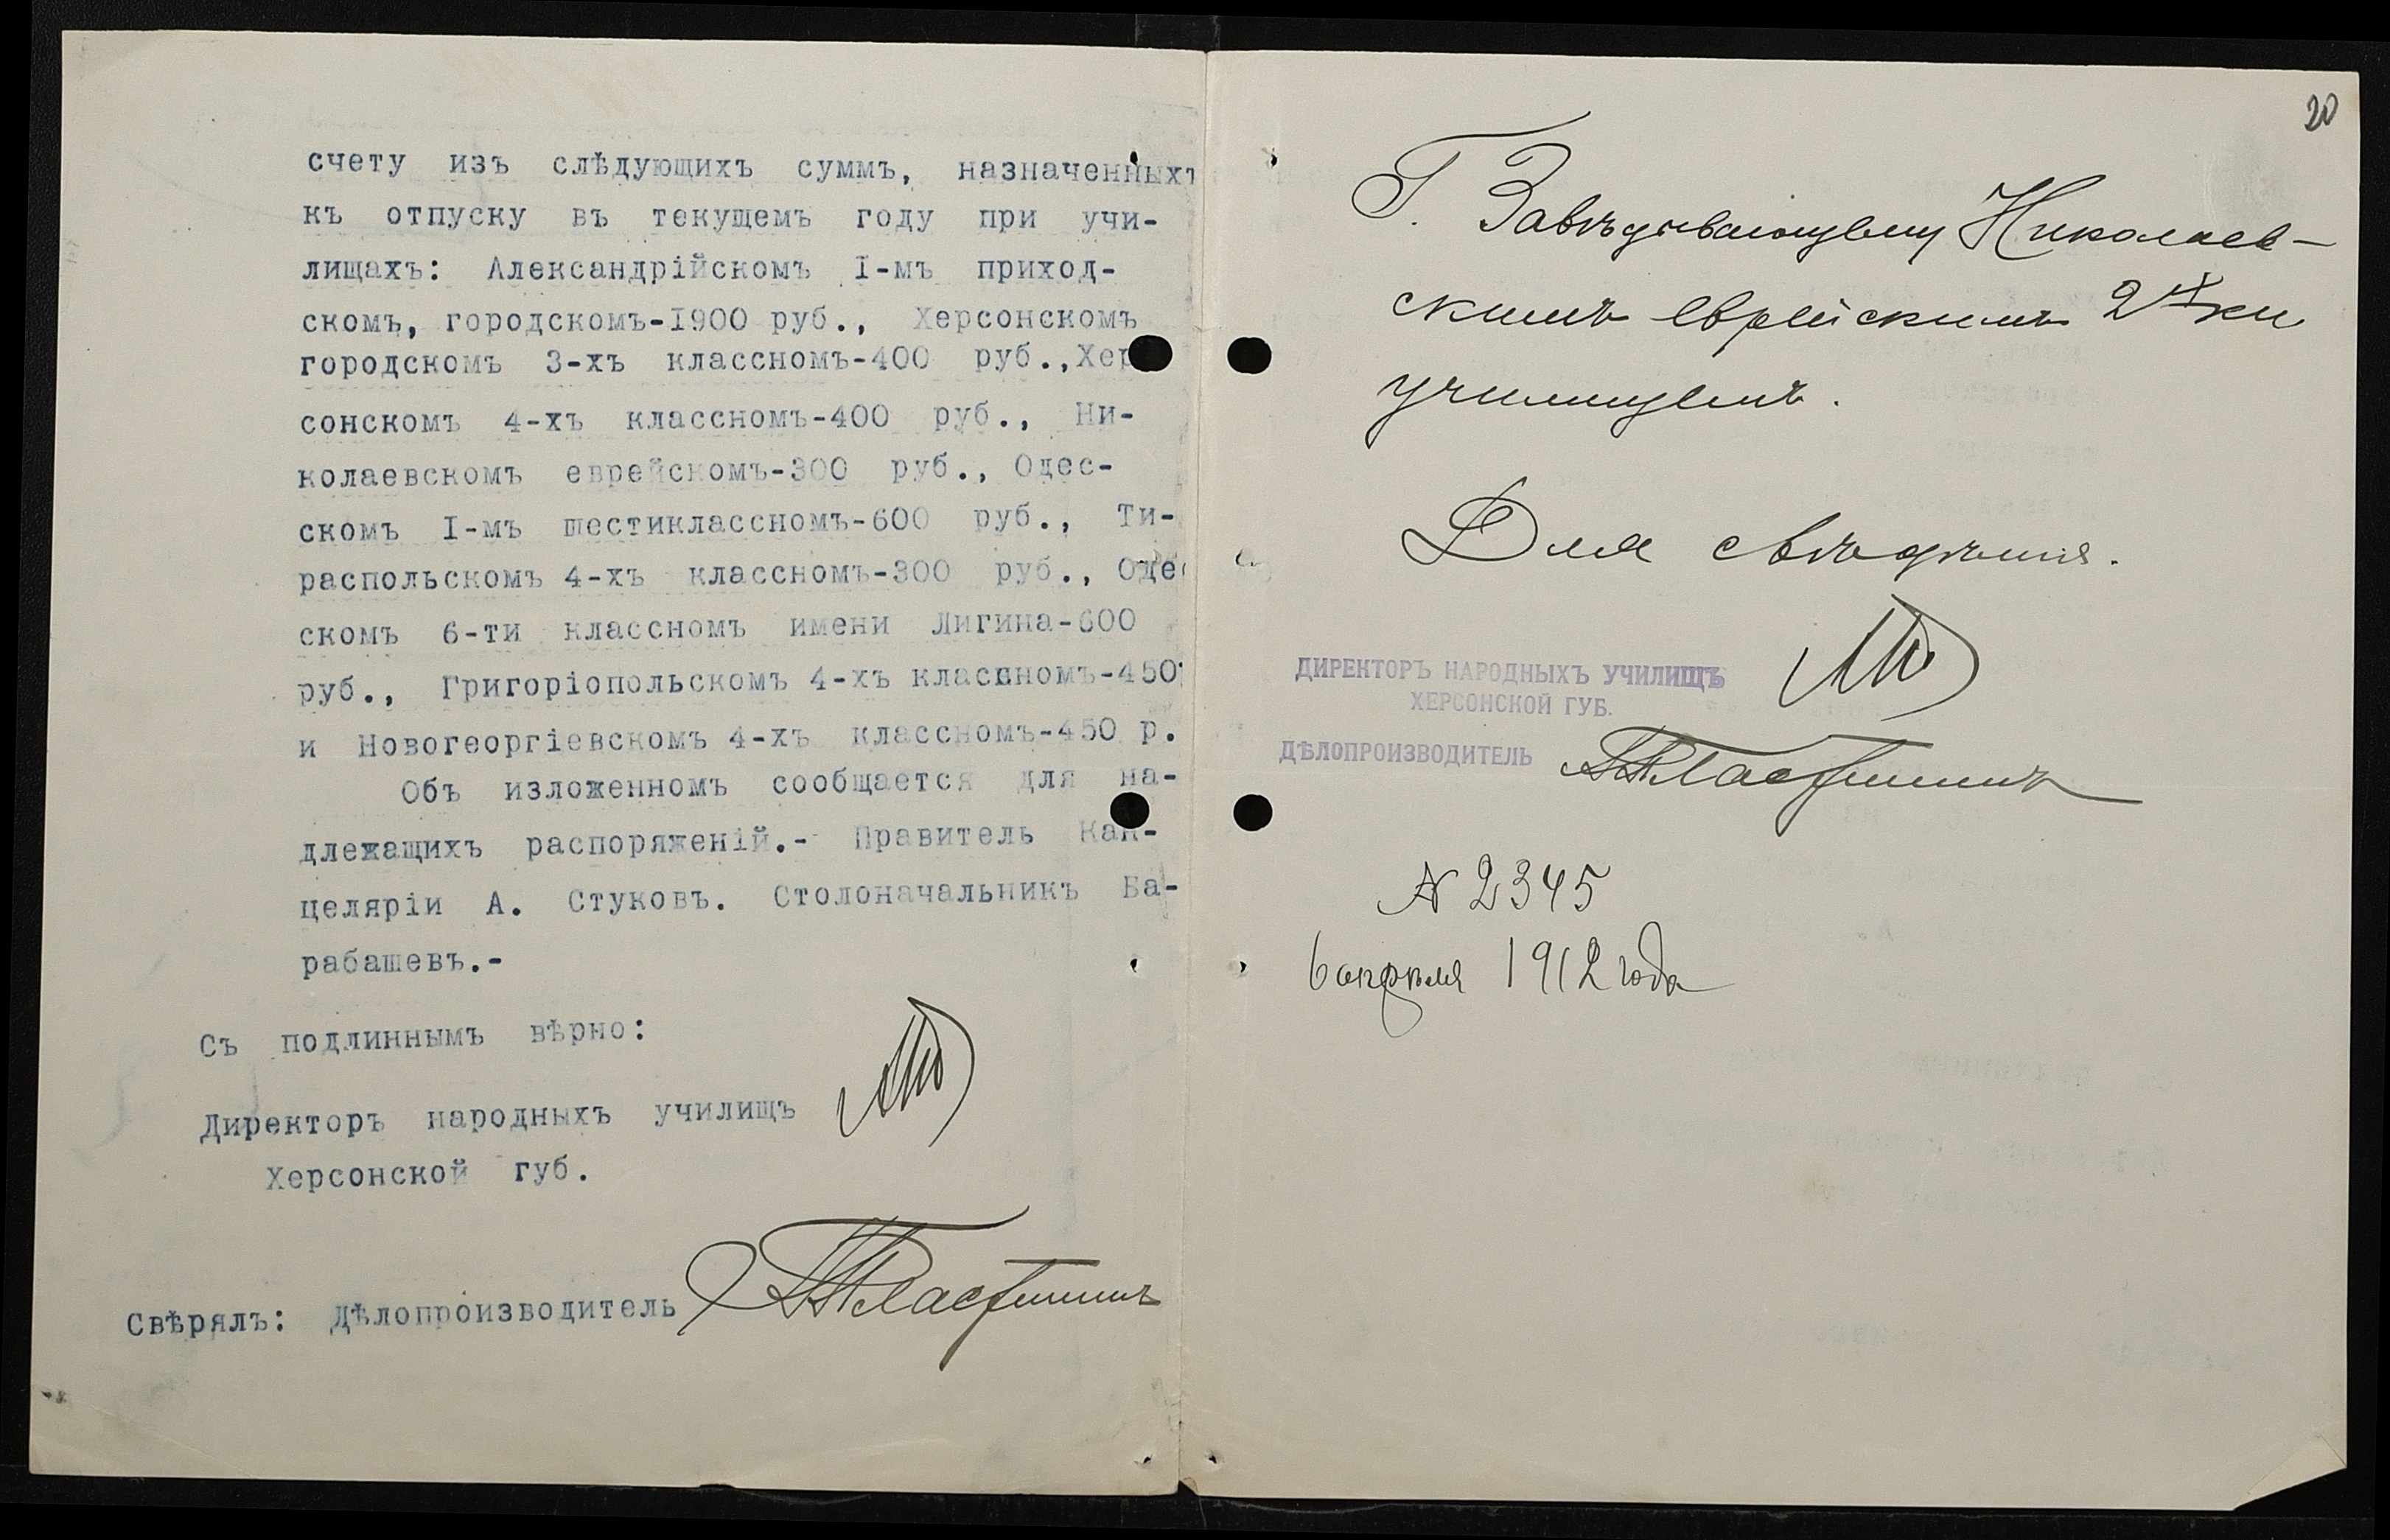 счету изъ слѣдующихъ суммъ, назначенныхъ
къ отпуску въ текущемъ году при учи-
лищахъ: Александрійскомъ I-мъ приход-
скомъ, городскомъ-1900 руб., Херсонскомъ
городскомъ 3-хъ классномъ-400 руб.,Хер
сонскомъ 4-хъ классномъ-400 руб., Ни-
колаевскомъ еврейскомъ-300 руб., Одес-
скомъ I-мъ шестиклассномъ-600 руб., Ти-
распольскомъ 4-хъ классномъ-300 руб., Одес
скомъ 6-ти классномъ имени Лигина-600
руб., Григоріопольскомъ 4-хъ классномъ-450
и Новогеоргіевскомъ 4-хъ классномъ-450 р.
Объ изложенномъ сообщается для на-
длежащихъ распоряженій.- Правитель Кан-
целяріи А. Стуковъ. Столоначальникъ Ба-
рабашевъ.-
Съ подлиннымъ вѣрно:
Директоръ народныхъ училищъ
Херсонской губ.
Свѣрялъ: Дѣлопроизводитель
20
Г. Завѣдывающему Николаев-
скимъ еврейскимъ 2х кл
училищемъ.
Для свѣдѣнія.
ДИРЕКТОРЪ НАРОДНЫХЪ УЧИЛИЩЪ
ХЕРСОНСКОЙ ГУБ.
ДѢЛОПРОИЗВОДИТЕЛЬ
№ 2345
6 апрѣля 1912 года